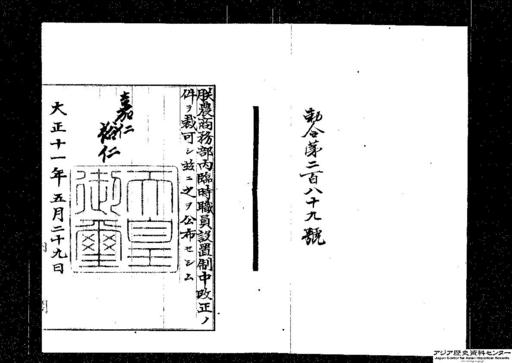 勅令第二百八十九號
朕農商務部内臨時職員設置制中改正ノ
件ヲ裁可シ茲ニ之ヲ公布セシム
嘉仁
裕仁
天皇
御璽
大正十一年五月二十九日
アジア歴史資料センター
Japan Center for Asian Historical Records